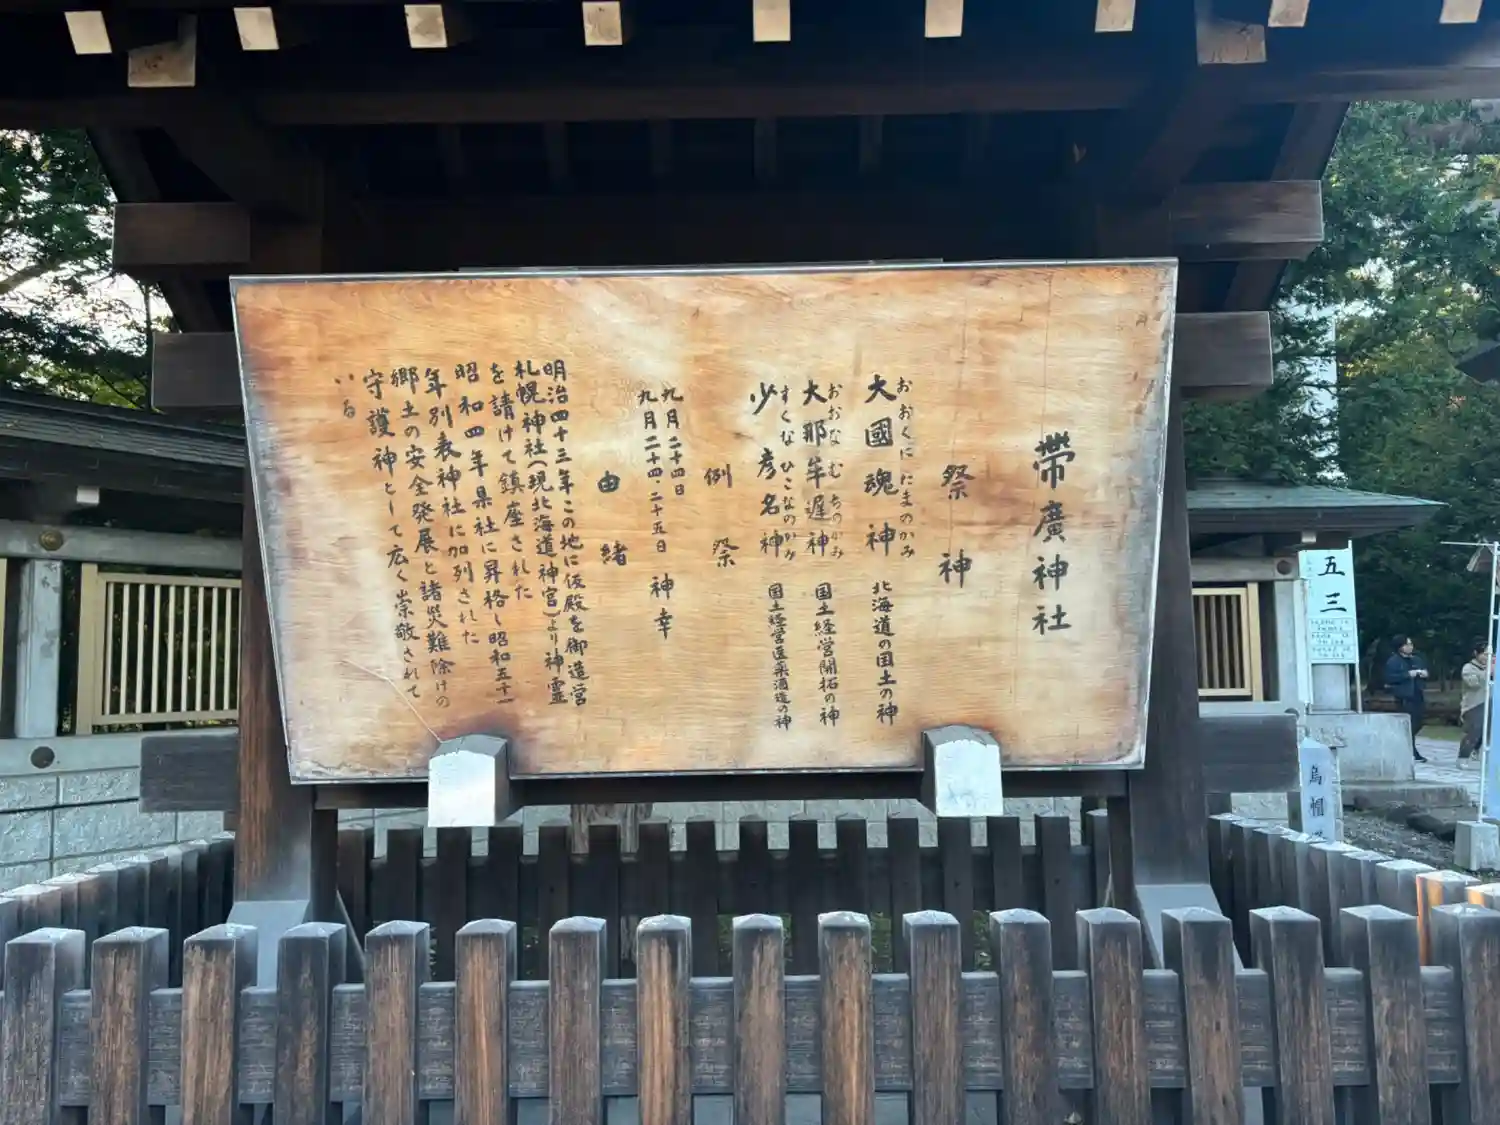 帯廣神社
祭神
おおくにたまのかみ
大國魂神 北海道の国土の神
おおなむちのかみ
大那牟遅神 国土経営開拓の神
すくなひこなのかみ
少彦名神 国土経営医薬酒造の神
例祭
九月二十四日
九月二十四・二十五日 神幸
由緒
明治四十三年この地に仮殿を御造営
札幌神社(現北海道神宮)より神霊
を請けて鎮座された
昭和四年県社に昇格し昭和五十一
年別表神社に加列された
郷土の安全発展と諸災難除けの
守護神として広く崇敬されて
いる
五三
烏帽